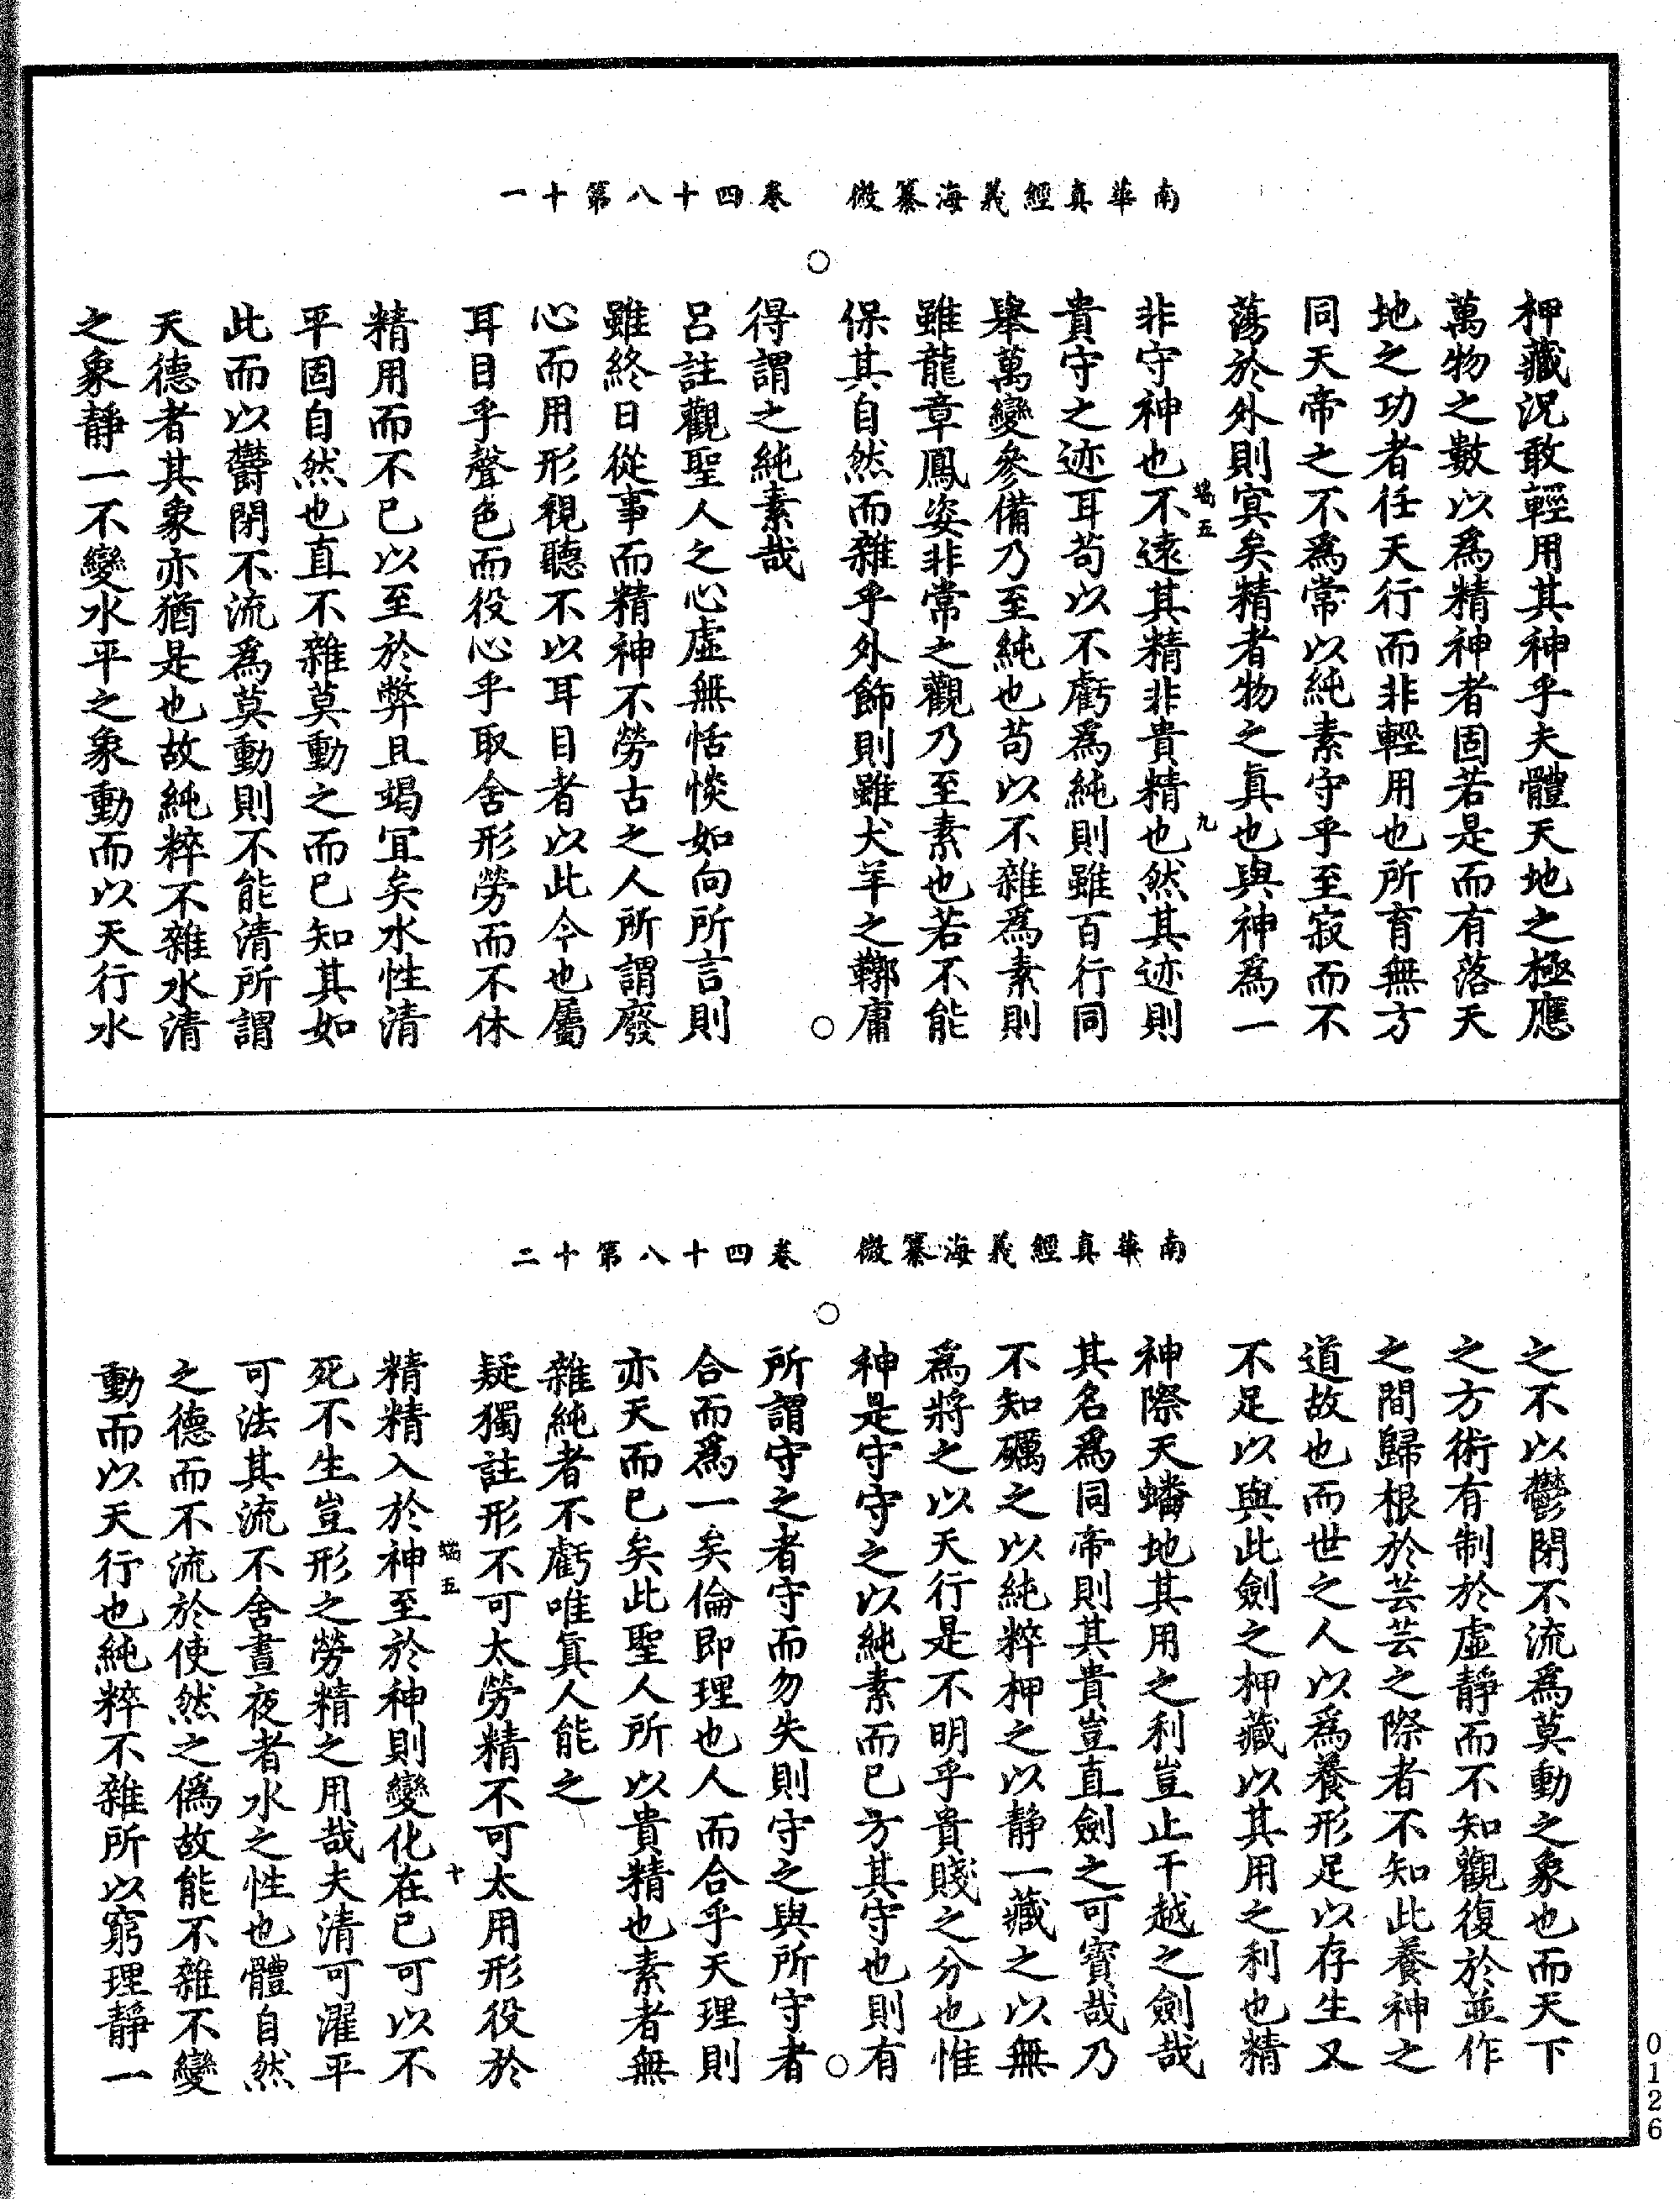 南華真經義海纂微　卷四十八第十一
柙藏況敢輕用其神乎夫體天地之極應
萬物之數以爲精神者固若是而有落天
地之功者任天行而非輕用也所育無方
同天帝之不爲常以純素守乎至寂而不
蕩於外則冥矣精者物之真也與神爲一
非守神也不遠其精非貴精也然其迹則
端五
九
貴守之迹耳苟以不虧爲純則雖百行同
舉萬變參備乃至純也苟以不雜爲素則
雖龍章鳳姿非常之觀乃至素也若不能
保其自然而雜乎外飾則雖犬羊之鞹庸
得謂之純素哉
呂註觀聖人之心虛無恬惔如向所言則
雖終日從事而精神不勞古之人所謂廢
心而用形視聽不以耳目者以此今也屬
耳目乎聲色而役心乎取舍形勞而不休
精用而不已以至於弊且竭宜矣水性清
平固自然也直不雜莫動之而已知其如
此而以鬱閉不流爲莫動則不能清所謂
天德者其象亦猶是也故純粹不雜水清
之象靜一不變水平之象動而以天行水
南華真經義海纂微　卷四十八第十二
之不以鬱閉不流爲莫動之象也而天下
之方術有制於虛靜而不知觀復於並作
之間歸根於芸芸之際者不知此養神之
道故也而世之人以爲養形足以存生又
不足以與此劍之柙藏以其用之利也精
神際天蟠地其用之利豈止干越之劍哉
其名爲同帝則其貴豈直劍之可寶哉乃
不知礪之以純粹柙之以靜一藏之以無
爲將之以天行是不明乎貴賤之分也惟
神是守守之以純素而已方其守也則有
所謂守之者守而勿失則守之與所守者
合而爲一矣倫即理也人而合乎天理則
亦天而已矣此聖人所以貴精也素者無
雜純者不虧唯真人能之
疑獨註形不可太勞精不可太用形役於
端五
十
精精入於神至於神則變化在已可以不
死不生豈形之勞精之用哉夫清可濯平
可法其流不舍晝夜者水之性也體自然
之德而不流於使然之僞故能不雜不變
動而以天行也純粹不雜所以窮理靜一
0126